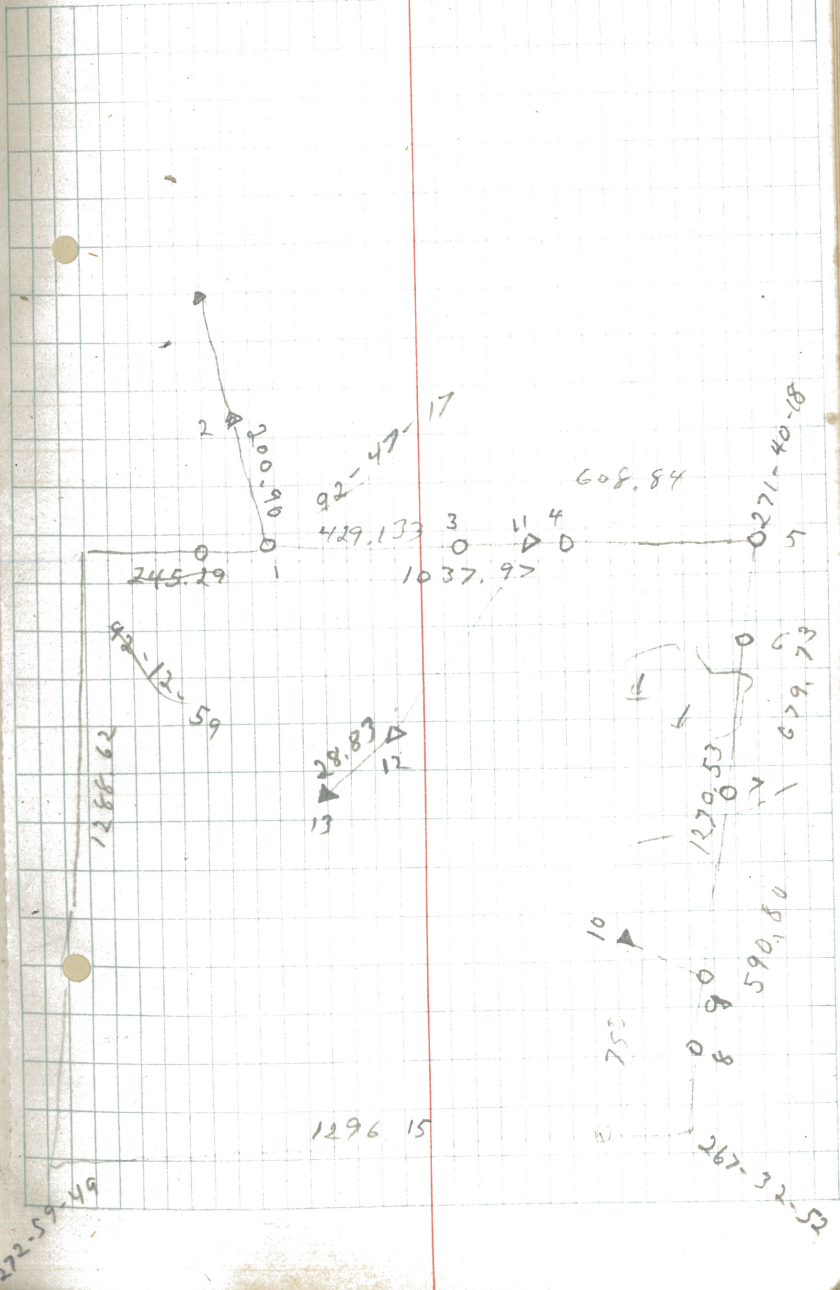 2
200.96
92-47-17
608.84
271-40-18
429.133
3
11
4
5
245.29
1
1037.97
6
679.73
92-12-59
1288.62
28.83
12
13
1270.53
10
590.80
9
8
8
1296 15
267-32-52
272-59-49